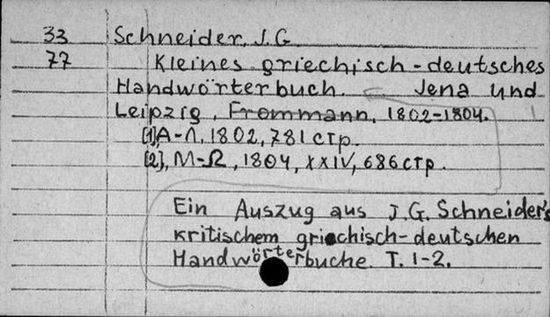 33 Schneider, J.G.
77 Kleines griechisch-deutsches
Handwörterbuch. Jena und
Leipzig, Frommann, 1802-1804.
[1], А-Λ, 1802, 781 стр.
[2], М-Ω, 1804, XXIV, 686 стр.
Ein Auszug aus J.G. Schneider's
kritischem griechisch-deutschen
Handwörterbuche. T. 1-2.